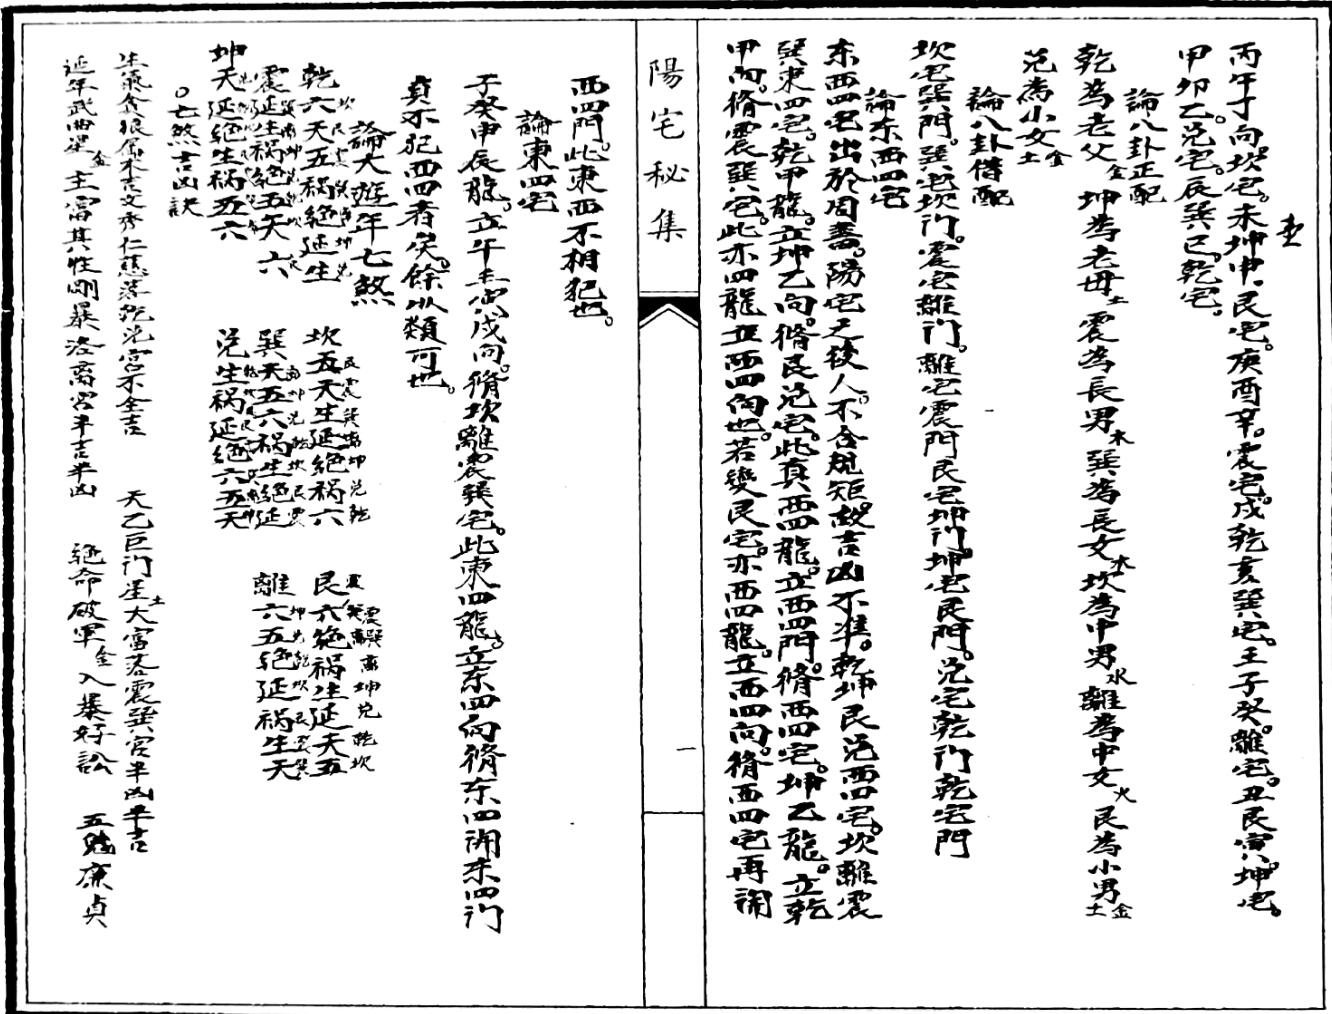 丙午丁向。坎宅。未坤申。艮宅。庚酉辛。震宅。戌乾亥巽宅。壬子癸。離宅。丑艮寅。坤宅。
甲卯乙。兑宅。辰巽巳。乾宅。
論八卦正配
乾為老父金 坤為老母土 震為長男木 巽為長女木 坎為中男水 離為中女火 艮為小男土
兑為小女金
論八卦偆配
坎宅巽門。巽宅坎门。震宅離门。離宅震門艮宅坤门。坤宅艮門。兑宅乾门乾宅門
論东西四宅
东西四宅出於周書。陽宅之後人。不合規矩。故吉凶不準。乾坤艮兑西四宅。坎離震
巽東四宅。乾甲龍。立坤乙向。脩艮兑宅。此真西四龍。立西四門。脩西四宅。坤乙龍。立乾
甲向。脩震巽宅。此亦四龍立西四向也。若變艮宅。亦西四龍。立西四向。脩西四宅再開
陽宅秘集
一
西四門。此東西不相犯也。
論東四宅
子癸申辰龍。立午壬寅戌向。脩坎離震巽宅。此東四龍。立东四向脩东四開东四门
真不犯西四者矣。餘以類可也。
論大遊年七煞
乾六天五禍絶延生 坎五天生延絶禍六 艮六絶禍生延天五
震延生禍絶五天六 巽天五六禍生絶延 離六五絶延禍生天
坤天延絶生禍五六 兑生禍延絶六五天
。七煞吉凶訣
生氣貪狼屬木吉文秀仁慈落乾兑宮不全吉 天乙巨门星土大富落震巽宮半凶半吉
延年武曲星金主富其性剛暴落離宮半吉半凶 絶命破軍金入暴好訟 五鬼廉貞